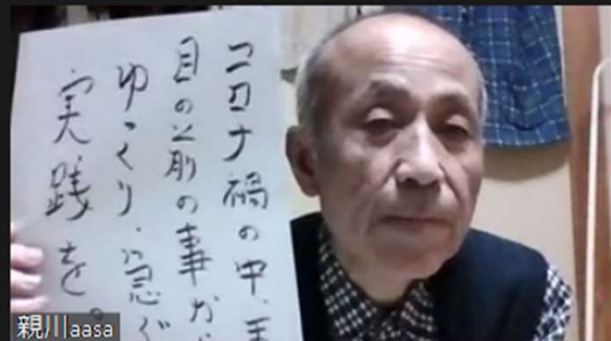 コロナ禍の中、
目の前の事か
ゆっくり、急ぐ
実践を。
親川aasa